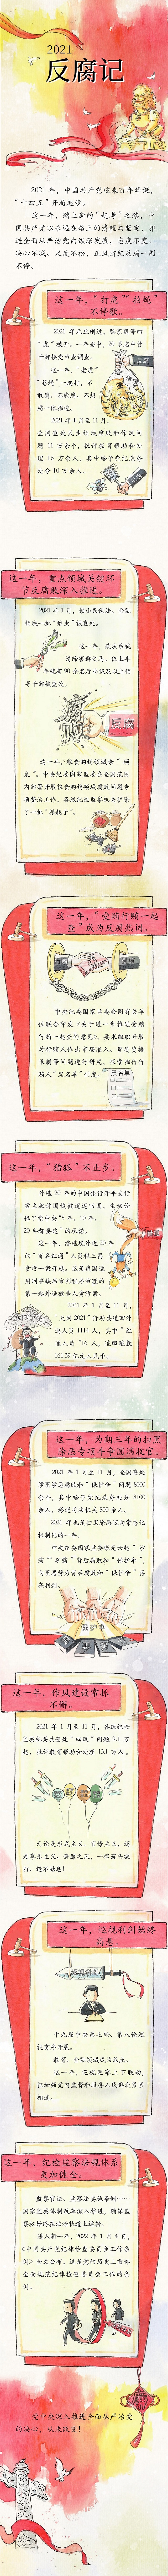 2021
反腐记
2021 年，中国共产党迎来百年华诞，
“十四五”开局起步。
这一年，踏上新的“赶考”之路，中
国共产党以永远在路上的清醒与坚定，推
进全面从严治党向纵深发展，态度不变、
决心不减、尺度不松，正风肃纪反腐一刻
不停。
这一年，“打虎”“拍蝇”
不停歇。
2021 年元旦刚过，骆家駹等四
“虎”被开。一年当中，20 多名中管
干部接受审查调查。
反腐
这一年，“老虎”
“苍蝇”一起打，不
敢腐、不能腐、不想
腐一体推进。
2021 年 1 月至 11 月，
全国查处民生领域腐败和作风问
题 11 万余个，批评教育帮助和处
理 16 万余人，其中给予党纪政务
处分 10 万余人。
这一年，重点领域关键环
节反腐败深入推进。
2021 年 1 月，赖小民伏法。金融
领域一批“蛀虫”被查处。
这一年，政法系统
清除害群之马。仅上半
年就有 90 余名厅局级及以上领
导干部被查处。
腐败
反腐
这一年，粮食购销领域除“硕
鼠”。中央纪委国家监委在全国范围
内部署开展粮食购销领域腐败问题专
项整治工作，各级纪检监察机关铲除
了一批“粮耗子”。
这一年，“受贿行贿一起
查”成为反腐热词。
中央纪委国家监委会同有关单
位联合印发《关于进一步推进受贿
行贿一起查的意见》，要求组织开展
对行贿人作出市场准入、资质资格
限制等问题进行研究，探索推行行
贿人“黑名单”制度。
黑名单
这一年，“猎狐”不止步。
外逃 20 年的中国银行开平支行
案主犯许国俊被遣返回国，生动诠
释了党中央“5 年、10 年、
20 年都要追”的承诺。
这一年，潜逃境外近 20 年
的“百名红通”人员程三昌
贪污一案开庭。这是我国适
用刑事缺席审判程序审理的
第一起外逃被告人贪污案。
2021 年 1 月至 11 月，
“天网 2021”行动共追回外
逃人员 1114 人，其中“红
通人员”16 人，追回赃款
161.39 亿元人民币。
这一年，为期三年的扫黑
除恶专项斗争圆满收官。
2021 年 1 月至 11 月，全国查处
涉黑涉恶腐败和“保护伞”问题 8000
余个，其中给予党纪政务处分 8100
余人，移送司法机关 800 余人。
2021 年也是扫黑除恶迈向常态化
机制化的一年。
中央纪委国家监委曝光六起“沙
霸”“矿霸”背后腐败和“保护伞”，
向黑恶势力背后腐败和“保护伞”再
亮利剑。
保护伞
这一年，作风建设常抓
不懈。
2021 年 1 月至 11 月，各级纪检
监察机关共查处“四风”问题 9.1 万
起，批评教育帮助和处理 13.1 万人。
无论是形式主义、官僚主义，还
是享乐主义、奢靡之风，一律露头就
打、绝不姑息！
这一年，巡视利剑始终
高悬。
十九届中央第七轮、第八轮巡
视有序开展。
教育、金融领域成为焦点。
这一年，巡视巡察上下联动，
把加强党内监督和服务人民群众紧密
相连。
这一年，纪检监察法规体系
更加健全。
监察官法、监察法实施条例……
国家监察体制改革深入推进，确保监
察权始终在法治轨道上运行。
进入新一年，2022 年 1 月 4 日，
《中国共产党纪律检查委员会工作条
例》全文公布，这是党的历史上首部
全面规范纪律检查委员会工作的条
例。
党中央深入推进全面从严治党
的决心，从未改变！